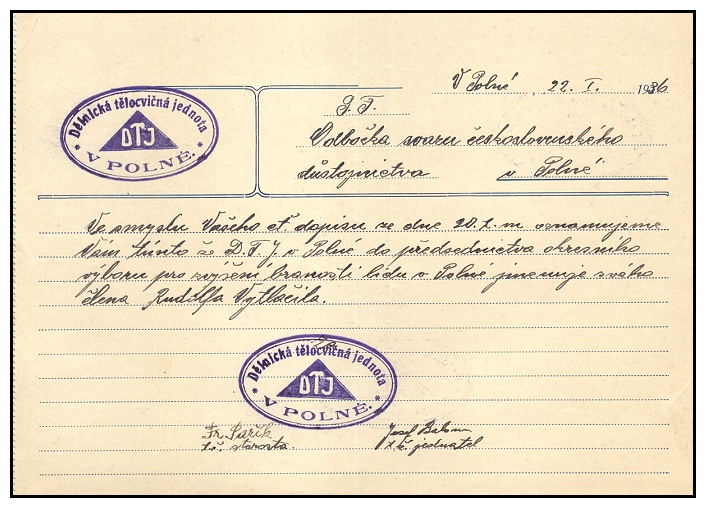 V Polné, 22. I. 1936
Dělnická tělocvičná jednota
DTJ
* V POLNÉ. *
P. T.
Odbočka svazu československého
důstojnictva v Polné
Ve smyslu Vašeho ct. dopisu ze dne 20. t. m. oznamujeme
Vám tímto že D.T.J. v Polné do předsednictva okresního
výboru pro zvýšení branosti lidu v Polné jmenuje svého
člena Rudolfa Vytlačila.
Dělnická tělocvičná jednota
DTJ
* V POLNÉ. *
Fr. Josef
t.č. starosta. t.č. jednatel